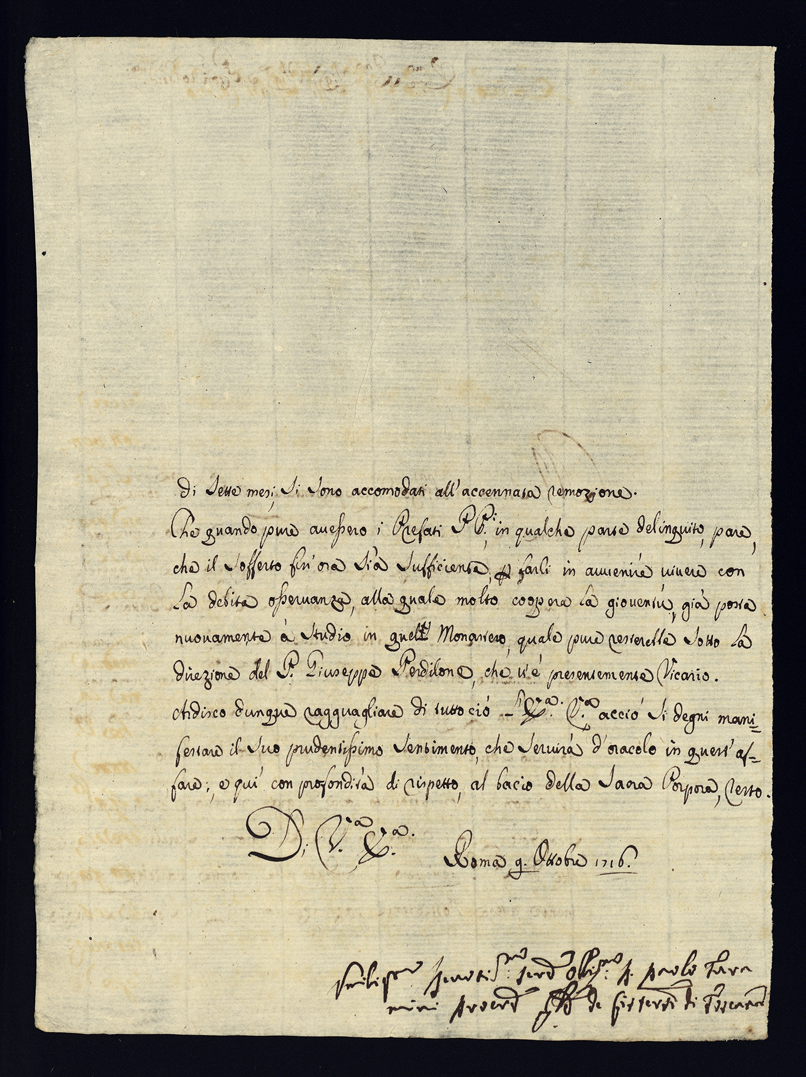 di Sette mesi, si sono accomodati all'accennata remozione.
Che quando pure avessero i Prefati PP.i, in qualche parte delinquito, pare,
che il sofferto fin'ora sia sufficiente, farli in avvenire vivere con
la debita osservanza, alla quale molto coopera la gioventù, già posta
nuovamente à studio in quel Monastero, quale pure resterebbe sotto la
direzione del P. Giuseppe Perdilone, che v'è presentemente Vicario.
Ardisco dunque ragguagliare di tuttociò V.ra acciò si degni mani=
festare il suo prudentissimo sentimento, che servirà d'oracolo in quest'af=
fare; e quì con profondità di rispetto, al bacio della Sacra Porpora, resto.
Di V.ra E.za
Roma 9. Ottobre 1716.
Umiliss.mo Devotis.mo Serv.e Obblig.mo D. Paolo
de Cisterc. di Toscana